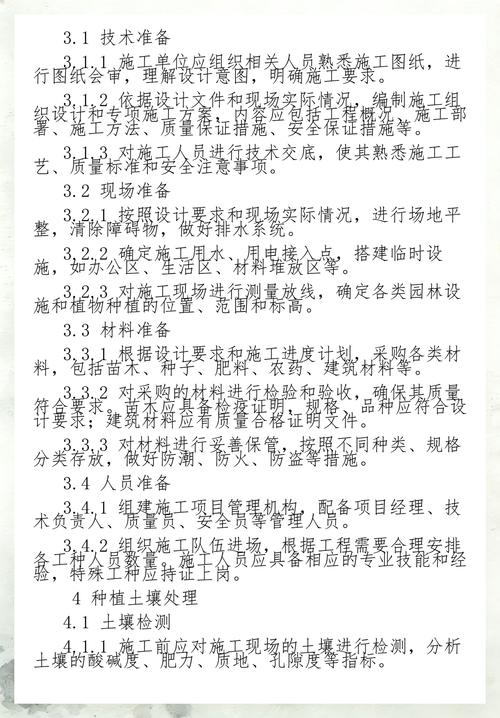 3.1 技术准备
3.1.1 施工单位应组织相关人员熟悉施工图纸，进
行图纸会审，理解设计意图，明确施工要求。
3.1.2 依据设计文件和现场实际情况，编制施工组
织设计和专项施工方案，内容应包括工程概况、施工部
署、施工方法、质量保证措施、安全保证措施等。
3.1.3 对施工人员进行技术交底，使其熟悉施工工
艺、质量标准和安全注意事项。
3.2 现场准备
3.2.1 按照设计要求和现场实际情况，进行场地平
整，清除障碍物，做好排水系统。
3.2.2 确定施工用水、用电接入点，搭建临时设
施，如办公区、生活区、材料堆放区等。
3.2.3 对施工现场进行测量放线，确定各类园林设
施和植物种植的位置、范围和标高。
3.3 材料准备
3.3.1 根据设计要求和施工进度计划，采购各类材
料，包括苗木、种子、肥料、农药、建筑材料等。
3.3.2 对采购的材料进行检验和验收，确保其质量
符合要求。苗木应具备检疫证明，规格、品种应符合设
计要求；建筑材料应有质量合格证明文件。
3.3.3 对材料进行妥善保管，按照不同种类、规格
分类存放，做好防潮、防火、防盗等措施。
3.4 人员准备
3.4.1 组建施工项目管理机构，配备项目经理、技
术负责人、质量员、安全员等管理人员。
3.4.2 组织施工队伍进场，根据工程需要合理安排
各工种人员数量。施工人员应具备相应的专业技能和经
验，特殊工种应持证上岗。
4 种植土壤处理
4.1 土壤检测
4.1.1 施工前应对施工现场的土壤进行检测，分析
土壤的酸碱度、肥力、质地、孔隙度等指标。